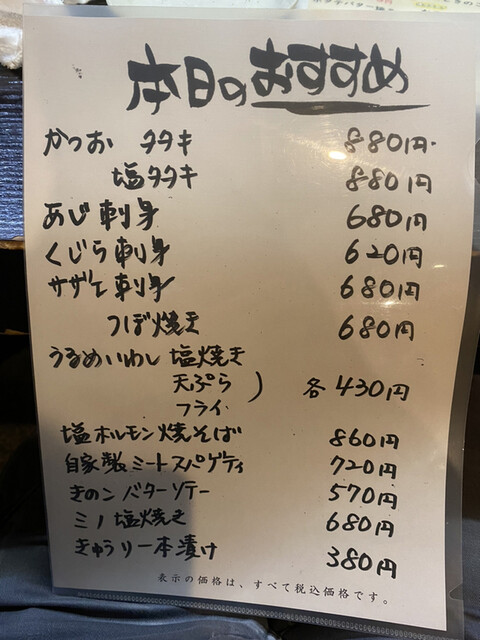 本日のおすすめ
かつお タタキ 880円
塩タタキ 880円
あじ刺身 680円
くじら刺身 620円
サザエ刺身 680円
つぼ焼き 680円
うるめいわし 塩焼き
天ぷら ) 各430円
フライ
塩ホルモン焼そば 860円
自家製ミートスパゲティ 720円
きのこバターソテー 570円
ミノ塩焼き 680円
きゅうり一本漬け 380円
表示の価格は、すべて税込価格です。